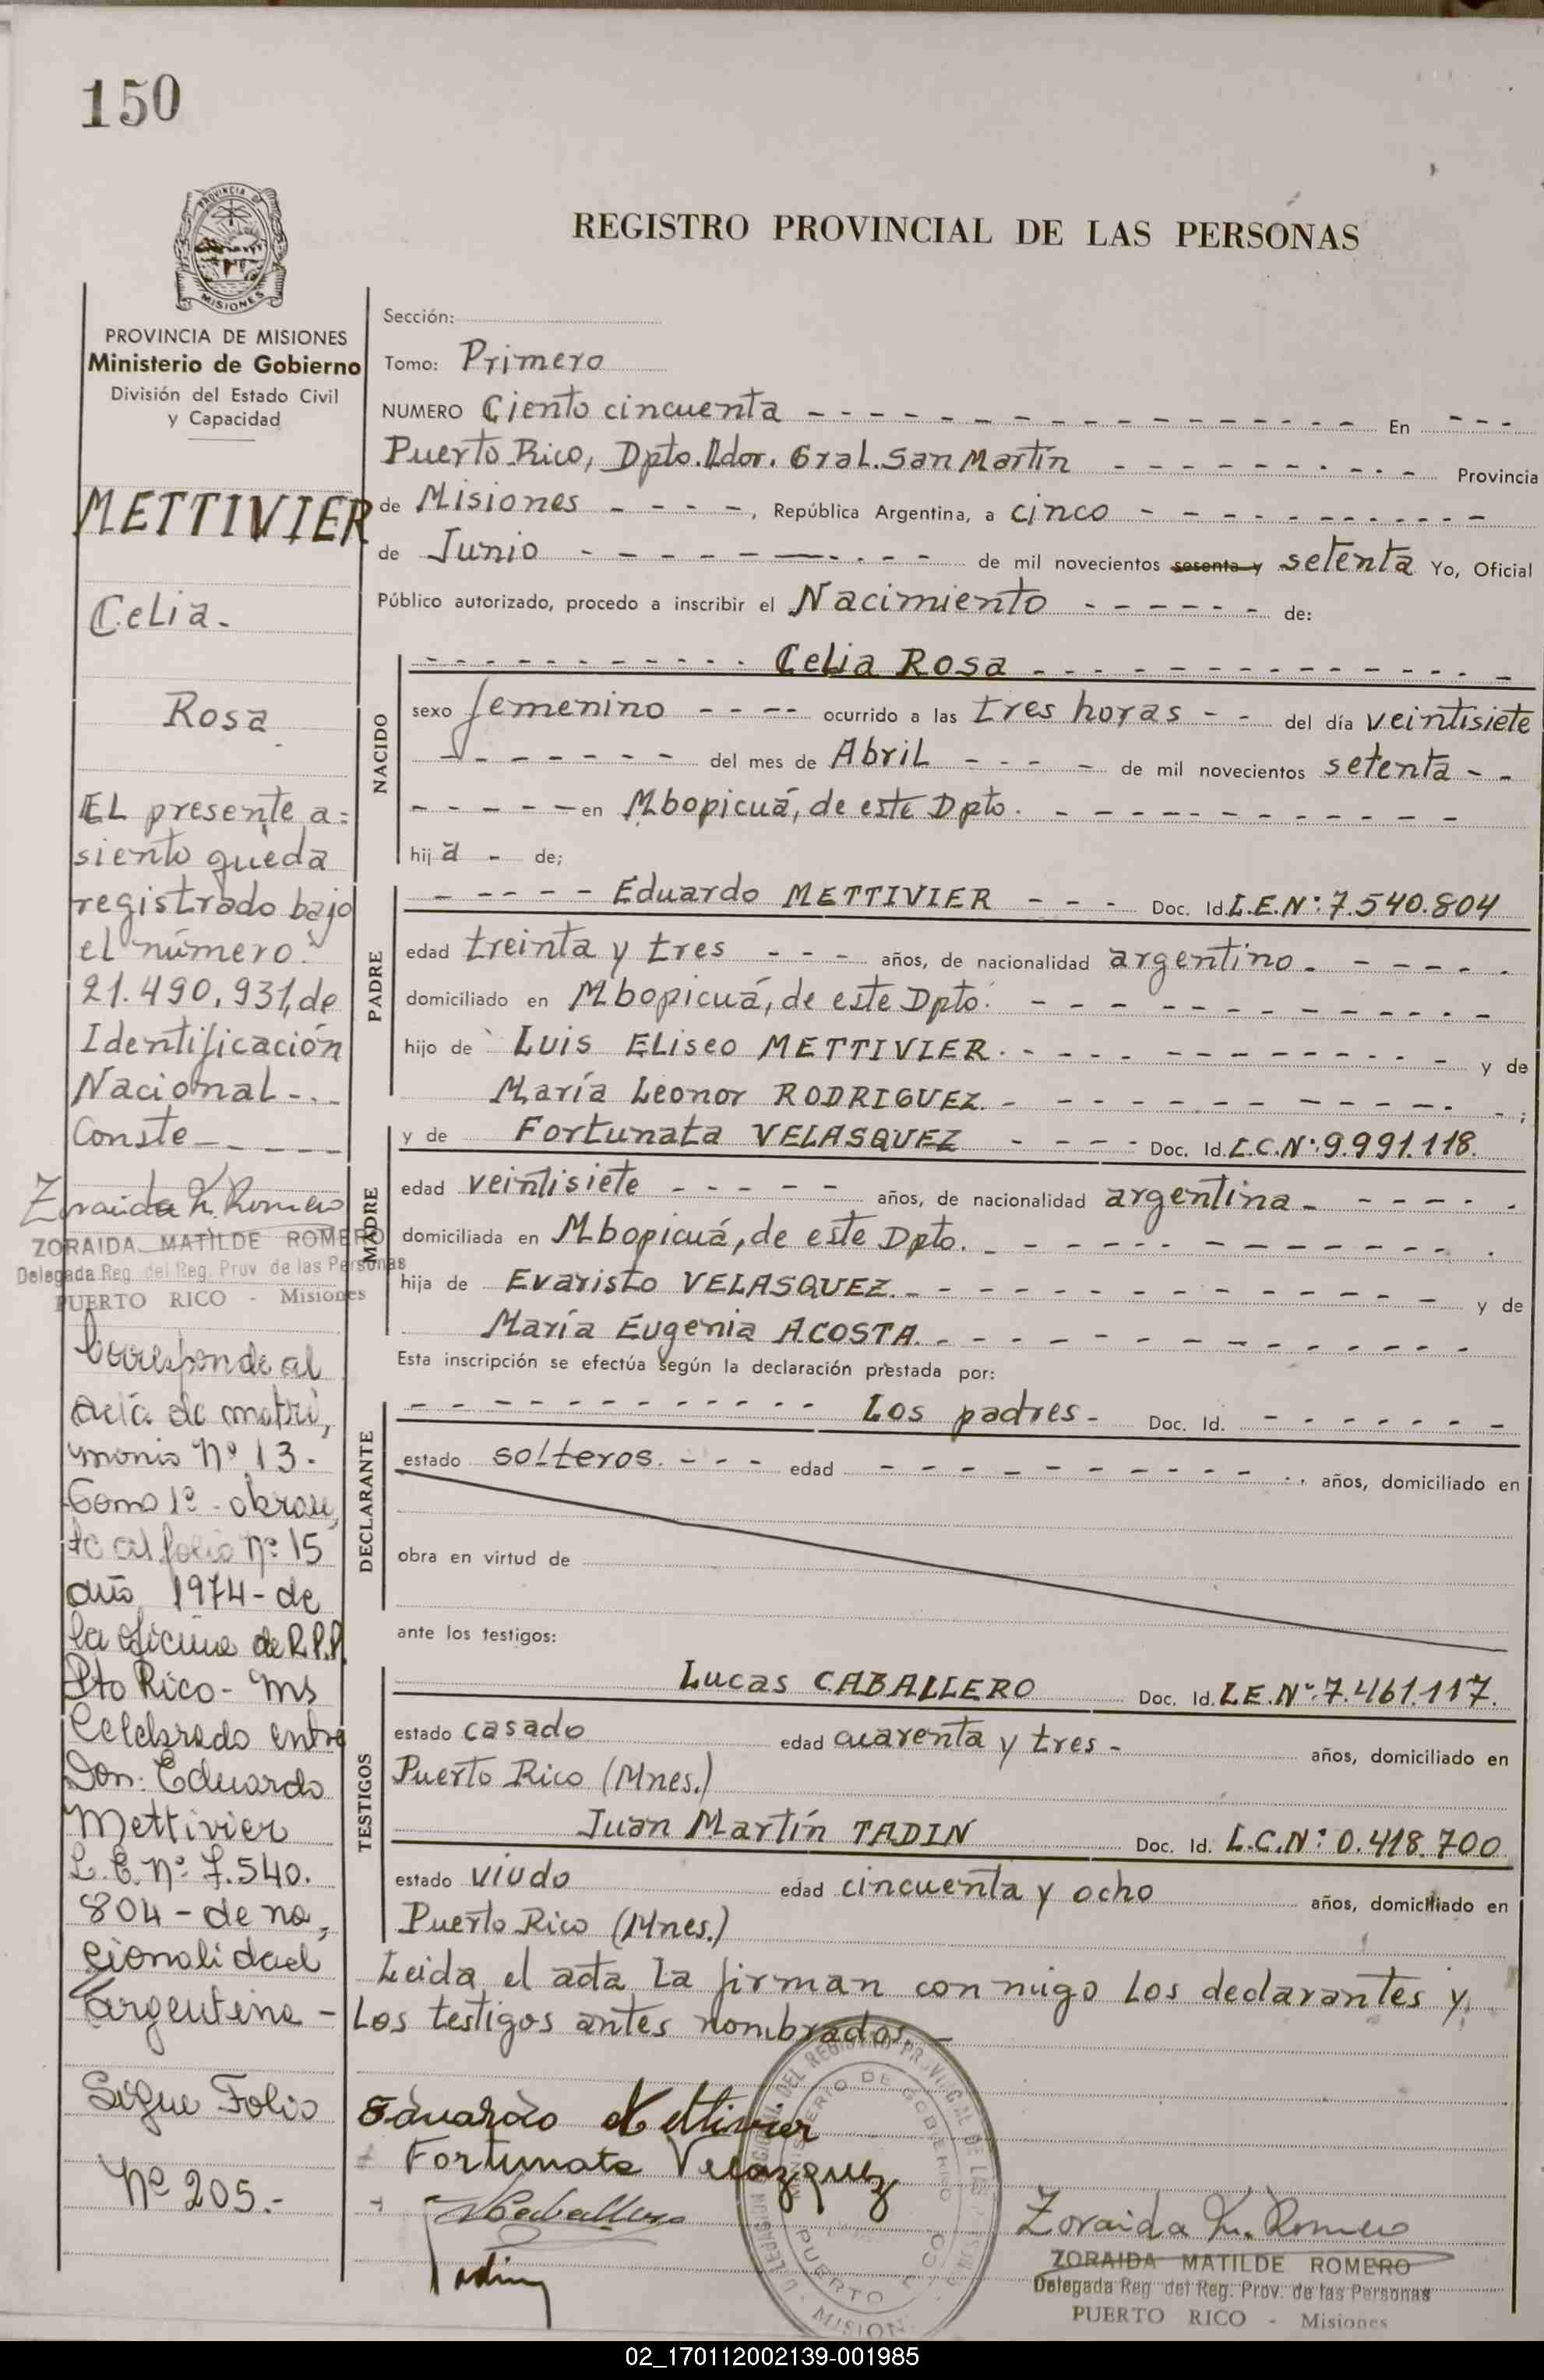 150
PROVINCIA DE
MISIONES
REGISTRO PROVINCIAL DE LAS PERSONAS
PROVINCIA DE MISIONES
Ministerio de Gobierno
División del Estado Civil
y Capacidad
METTIVIER
Celia.
Rosa
EL presente a=
siento queda
registrado bajo
el número:
21.490.931, de
Identificación
Nacional -.-
Conste - - - -
Zoraida M. Romero
ZORAIDA MATILDE ROMERO
Delegada Reg. del Reg. Prov. de las Personas
PUERTO RICO - Misiones
Corresponde al
acta de matri,
monio Nº 13.
Tomo 1º - obran,
te al folio Nº 15
año 1974 - de
la oficina de R.P.P.
Pto Rico - Mns
Celebrado entre
Don: Eduardo
Mettivier
L.E. Nº 7.540.
804 - de na,
cionalidad
Argentina -
Sigue Folio
Nº 205.-
Sección:
Tomo: Primero
NUMERO Ciento cincuenta - - - En - - -
Puerto Rico, Dpto. Ldor. Gral. San Martín - - - Provincia
de Misiones - - - -, República Argentina, a cinco - - -
de Junio - - - de mil novecientos sesenta y setenta Yo, Oficial
Público autorizado, procedo a inscribir el Nacimiento - - - de:
NACIDO
- - - Celia Rosa - - -
sexo femenino - - - - ocurrido a las tres horas - - del día veintisiete
- - - del mes de Abril - - - - de mil novecientos setenta - -
- - - en Mbopicuá, de este Dpto. - - -
hija - de;
PADRE
- - - Eduardo METTIVIER - - - Doc. Id. L.E.Nº: 7.540.804
edad treinta y tres - - - años, de nacionalidad argentino. - - -
domiciliado en Mbopicuá, de este Dpto. - - -
hijo de Luis ELiseo METTIVIER. - - - y de
María Leonor RODRIGUEZ. - - - ;
MADRE
y de Fortunata VELASQUEZ - - - - Doc. Id. L.C.Nº: 9.991.118.
edad veintisiete - - - años, de nacionalidad argentina - - -
domiciliada en Mbopicuá, de este Dpto. - - -
hija de Evaristo VELASQUEZ. - - - y de
María Eugenia ACOSTA. - - -
Esta inscripción se efectúa según la declaración prestada por:
DECLARANTE
- - - Los padres - Doc. Id. - - -
estado solteros. - - - edad - - - años, domiciliado en
obra en virtud de
ante los testigos:
TESTIGOS
Lucas CABALLERO Doc. Id. L.E.Nº: 7.461.117.
estado casado edad cuarenta y tres - años, domiciliado en
Puerto Rico (Mnes.)
Juan Martín TADIN Doc. Id. L.C.Nº: 0.418.700
estado viudo edad cincuenta y ocho años, domiciliado en
Puerto Rico (Mnes.)
Leida el acta la firman conmigo los declarantes y
Los testigos antes nombrados. -
Eduardo Mettivier
Fortunata Velazquez
Caballero
Tadin
MINISTERIO DE GOBIERNO
PUERTO RICO
Zoraida M. Romero
ZORAIDA MATILDE ROMERO
Delegada Reg. del Reg. Prov. de las Personas
PUERTO RICO - Misiones
02_170112002139-001985